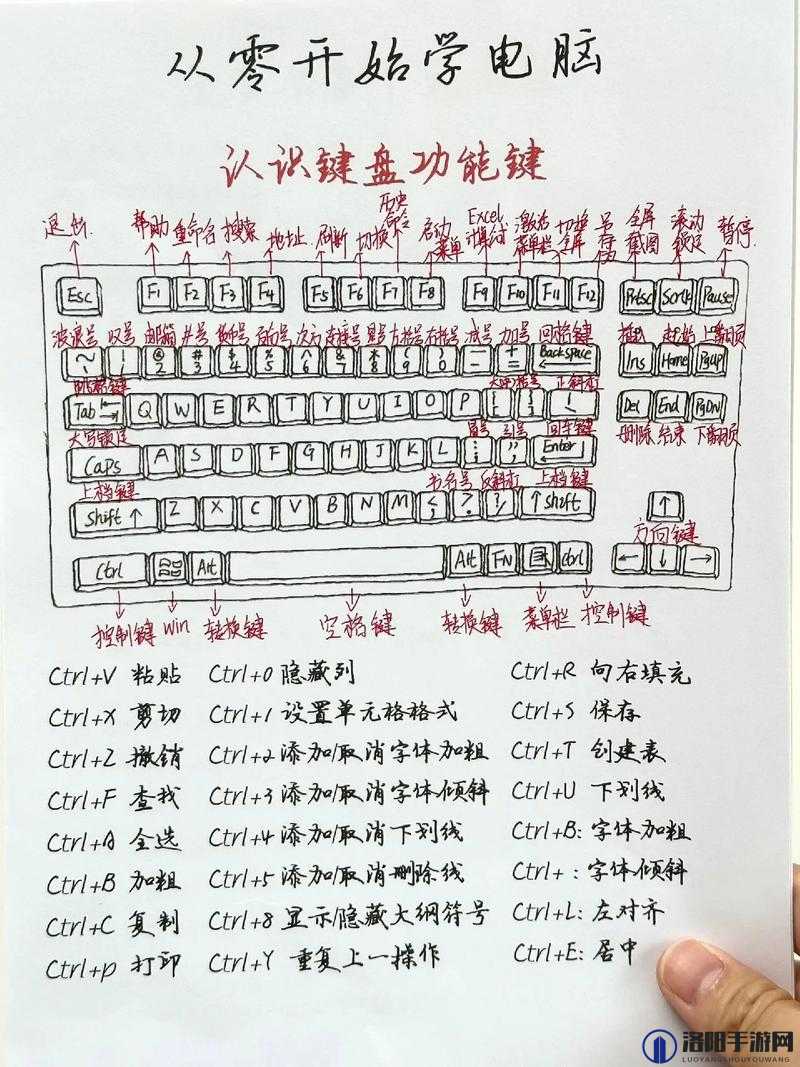 从零开始学电脑
认识键盘功能键
退出 帮助 重命名 搜索 地址 刷新 切换 历史命令 启动菜单 Excel计算公式 激活菜单栏 切换全屏 另存为 全屏截图 滚动锁定 暂停
Esc F1 F2 F3 F4 F5 F6 F7 F8 F9 F10 F11 F12 Prtsc Scrlk Pause
波浪号 叹号 邮箱 井号 货币号 百分号 次方 连接号 星号 左括号 右括号 减号 加号 回格键 插入 起始 上翻页
~ ! @ 2 # 3 $ 4 % 5 ^ 6 & 7 * 8 ( 9 ) 0 — + = Backspace Ins Home PgUp
大中括号 正斜杠
Tab Q W E R T Y U I O P Del End PgDn
大写锁定 冒号 引号 回车键 删除 结束 下翻页
Caps A S D F G H J K L Enter
上档键 书名号 反斜杠 上档键
Shift ↑ Z X C V B N M ↑ Shift ↑
方向键
Ctrl Alt Alt FN Ctrl ← ↓ →
控制键 Win 转换键 空格键 转换键 菜单栏 控制键
Ctrl+V 粘贴 Ctrl+0 隐藏列 Ctrl+R 向右填充
Ctrl+X 剪切 Ctrl+1 设置单元格格式 Ctrl+S 保存
Ctrl+Z 撤销 Ctrl+2 添加/取消字体加粗 Ctrl+T 创建表
Ctrl+F 查找 Ctrl+3 添加/取消字体倾斜 Ctrl+U 下划线
Ctrl+A 全选 Ctrl+4 添加/取消下划线 Ctrl+B: 字体加粗
Ctrl+B 加粗 Ctrl+5 添加/取消删除线 Ctrl+ : 字体倾斜
Ctrl+C 复制 Ctrl+8 显示/隐藏大纲符号 Ctrl+L: 左对齐
Ctrl+P 打印 Ctrl+Y 重复上一操作 Ctrl+E: 居中
洛阳手游网
LUOYANGSHOUYOUWANG